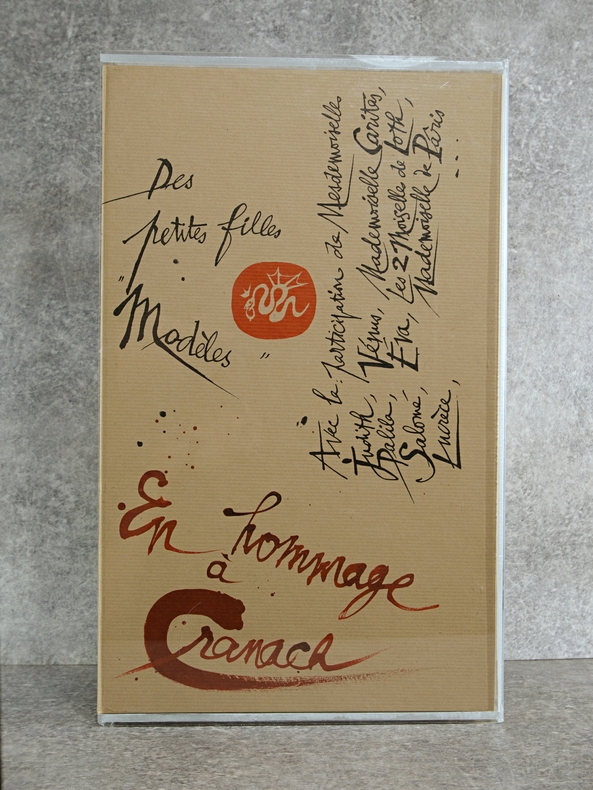 Des
petites filles
"Modèles"
En hommage
à
Cranach
Avec la participation de Mesdemoiselles
Judith, Vénus, Mademoiselle Caritas,
Dalila, Eva, les 2 Moiselles de Loth,
Salomé, Mademoiselle de Pâris
Lucrèce, ...